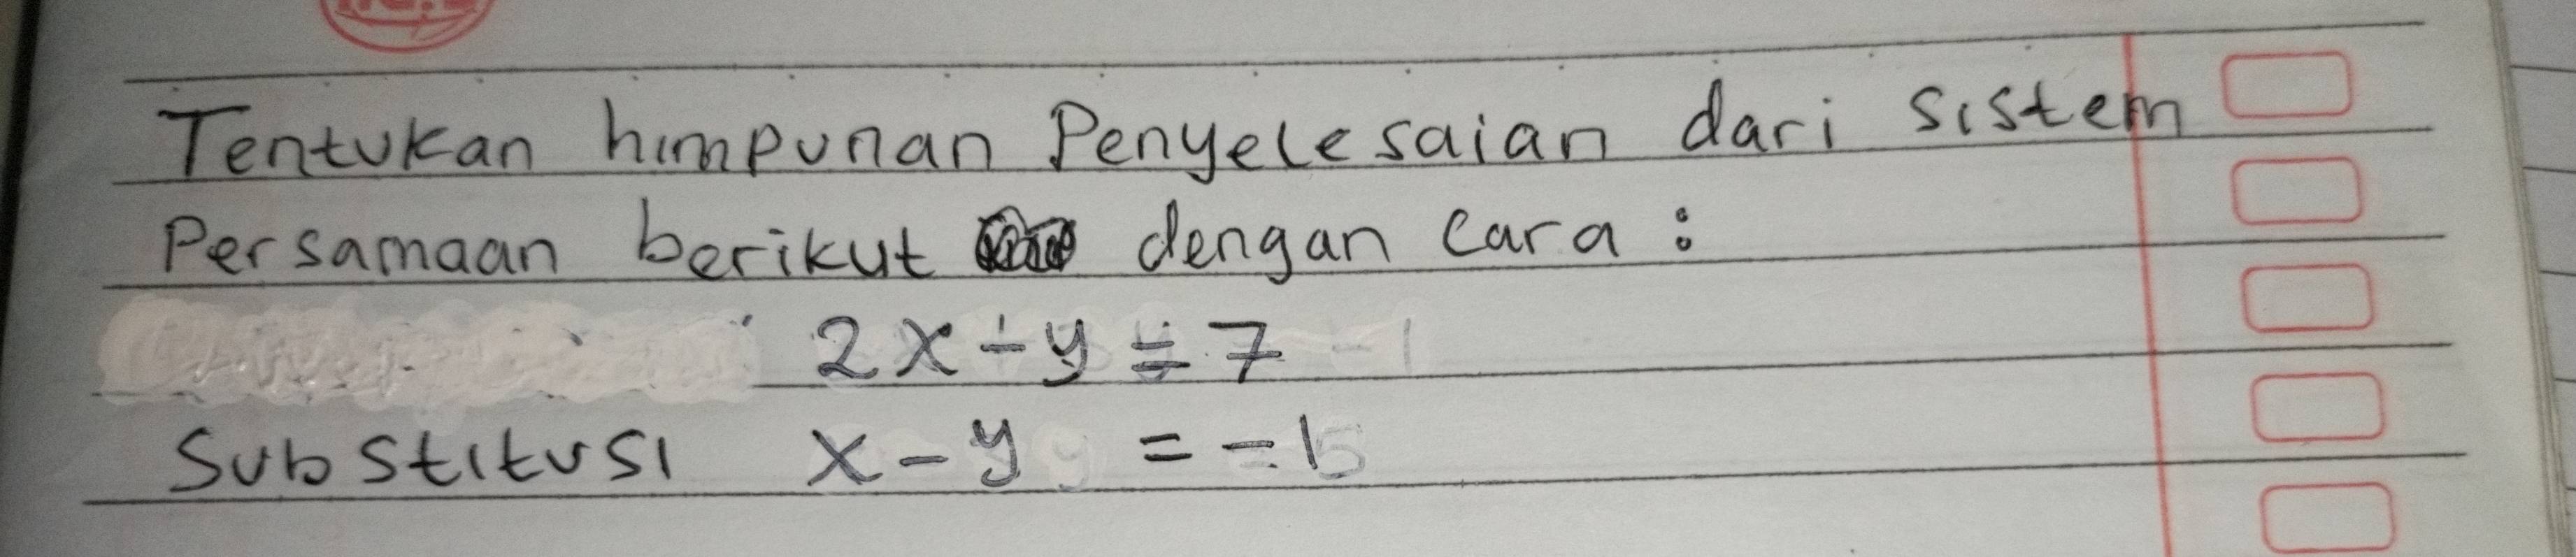 Tentukan himpunan Penyelesaian dari sistem
Persamaan berikut dengan cara :
2x + y = 7
Substitusi x - y = -1